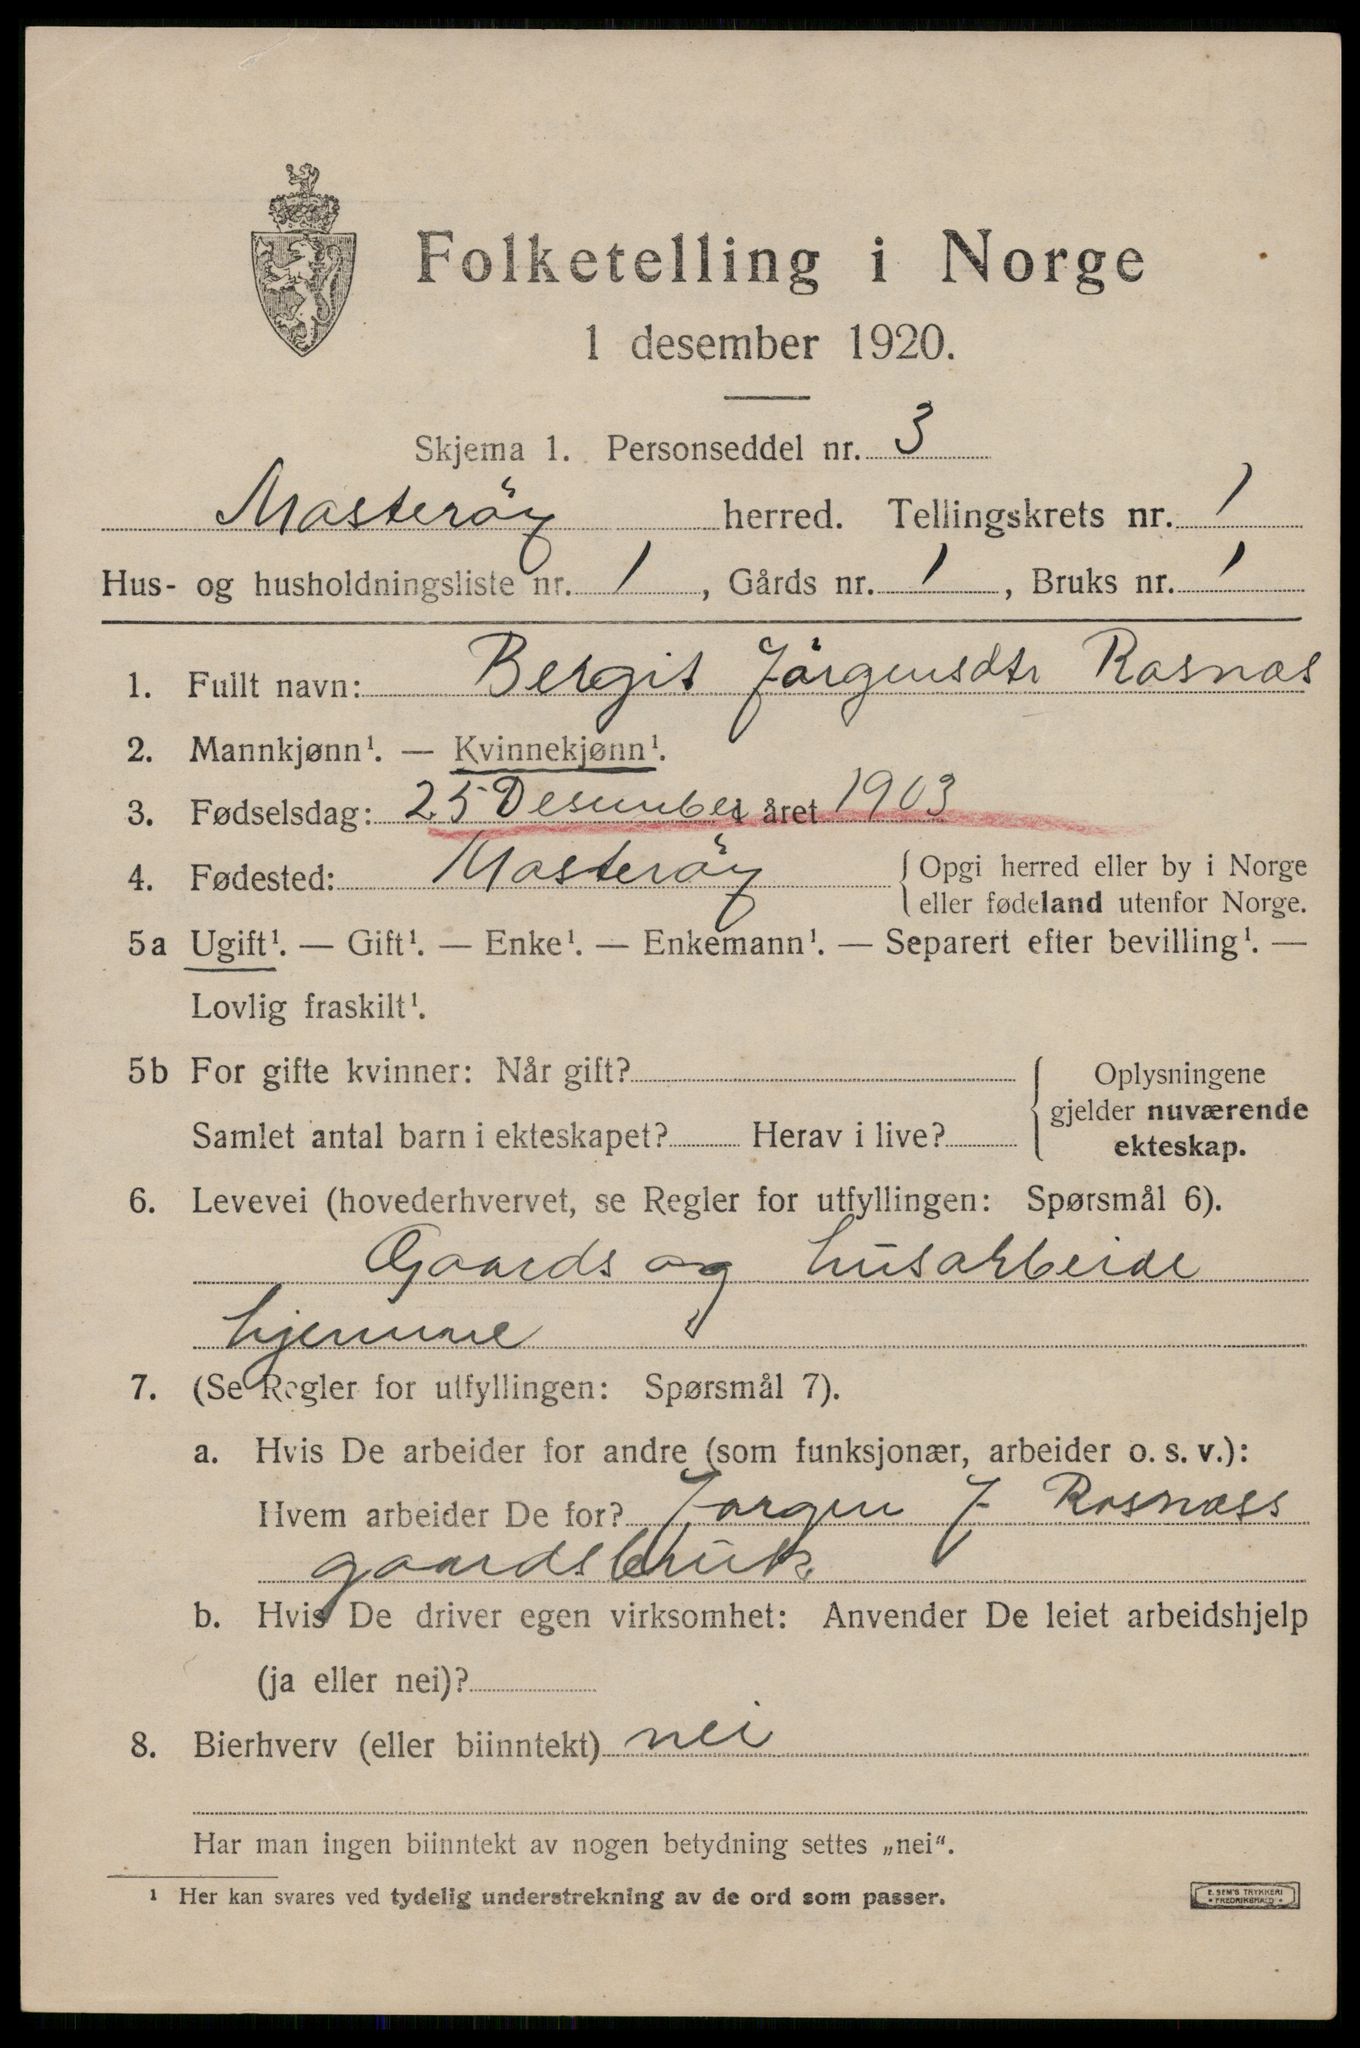 Folketelling i Norge
1 desember 1920.
Skjema 1. Personseddel nr. 3
Masterøy herred. Tellingskrets nr. 1
Hus- og husholdningsliste nr. 1, Gårds nr. 1, Bruks nr. 1
1. Fullt navn: Bergit Jørgensdtr Rosnos
2. Mannkjønn¹. — Kvinnekjønn¹.
3. Fødselsdag: 25 Desember året 1903
4. Fødested: Masterøy { Opgi herred eller by i Norge
eller fødeland utenfor Norge.
5a Ugift¹. — Gift¹. — Enke¹. — Enkemann¹. — Separert efter bevilling¹. —
Lovlig fraskilt¹.
5b For gifte kvinner: Når gift?
Samlet antal barn i ekteskapet? Herav i live?
{ Oplysningene
gjelder nuværende
ekteskap.
6. Levevei (hovederhvervet, se Regler for utfyllingen: Spørsmål 6).
Gaards og husarbeide
hjemme
7. (Se Regler for utfyllingen: Spørsmål 7).
a. Hvis De arbeider for andre (som funksjonær, arbeider o. s. v.):
Hvem arbeider De for? Jorgen J Rosnoss
gaardsbruk
b. Hvis De driver egen virksomhet: Anvender De leiet arbeidshjelp
(ja eller nei)?
8. Bierhverv (eller biinntekt) nei
Har man ingen biinntekt av nogen betydning settes „nei“.
¹ Her kan svares ved tydelig understrekning av de ord som passer.
E. SEM'S TRYKKERI
• FREDRIKSHALD •